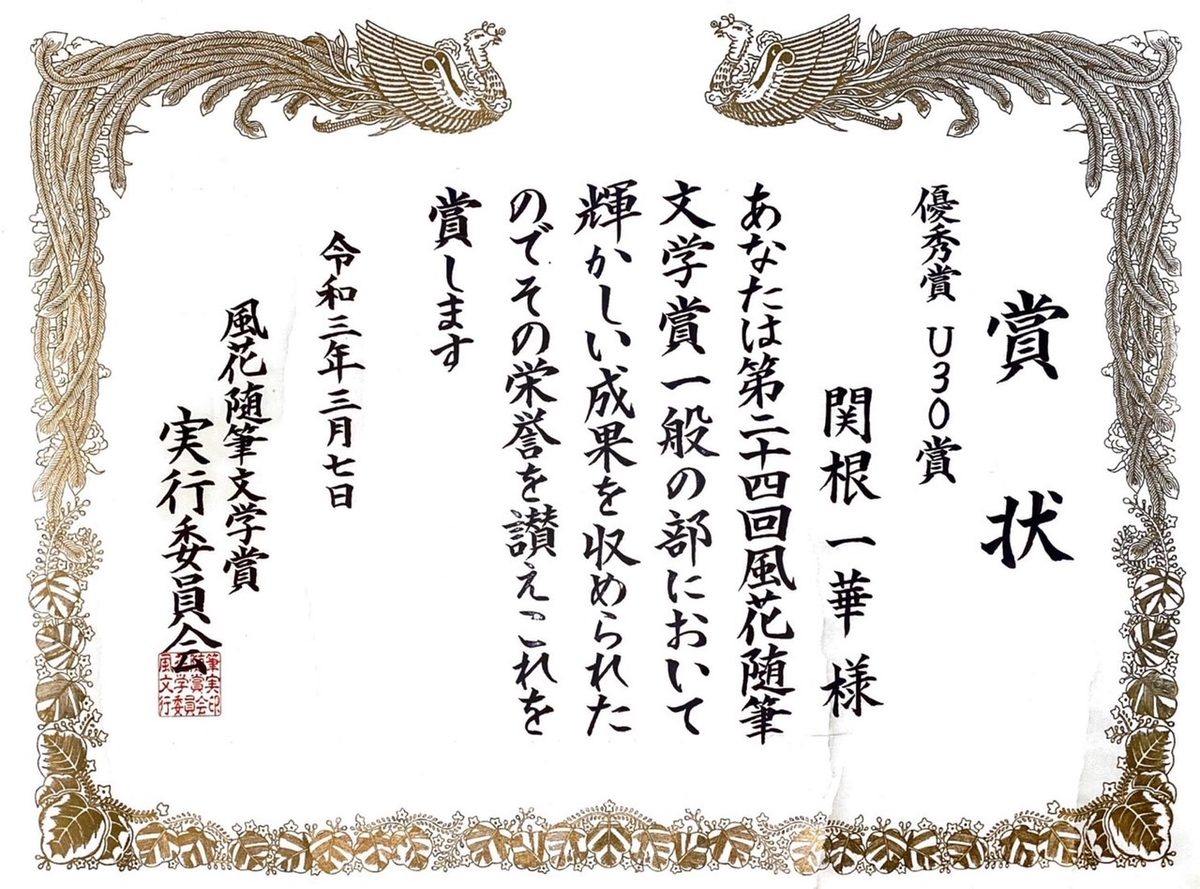 賞状
優秀賞 U30賞
関根一華様
あなたは第二十四回風花随筆
文学賞一般の部において
輝かしい成果を収められた
のでその栄誉を讃えこれを
賞します
令和三年三月七日
風花随筆文学賞
実行委員会